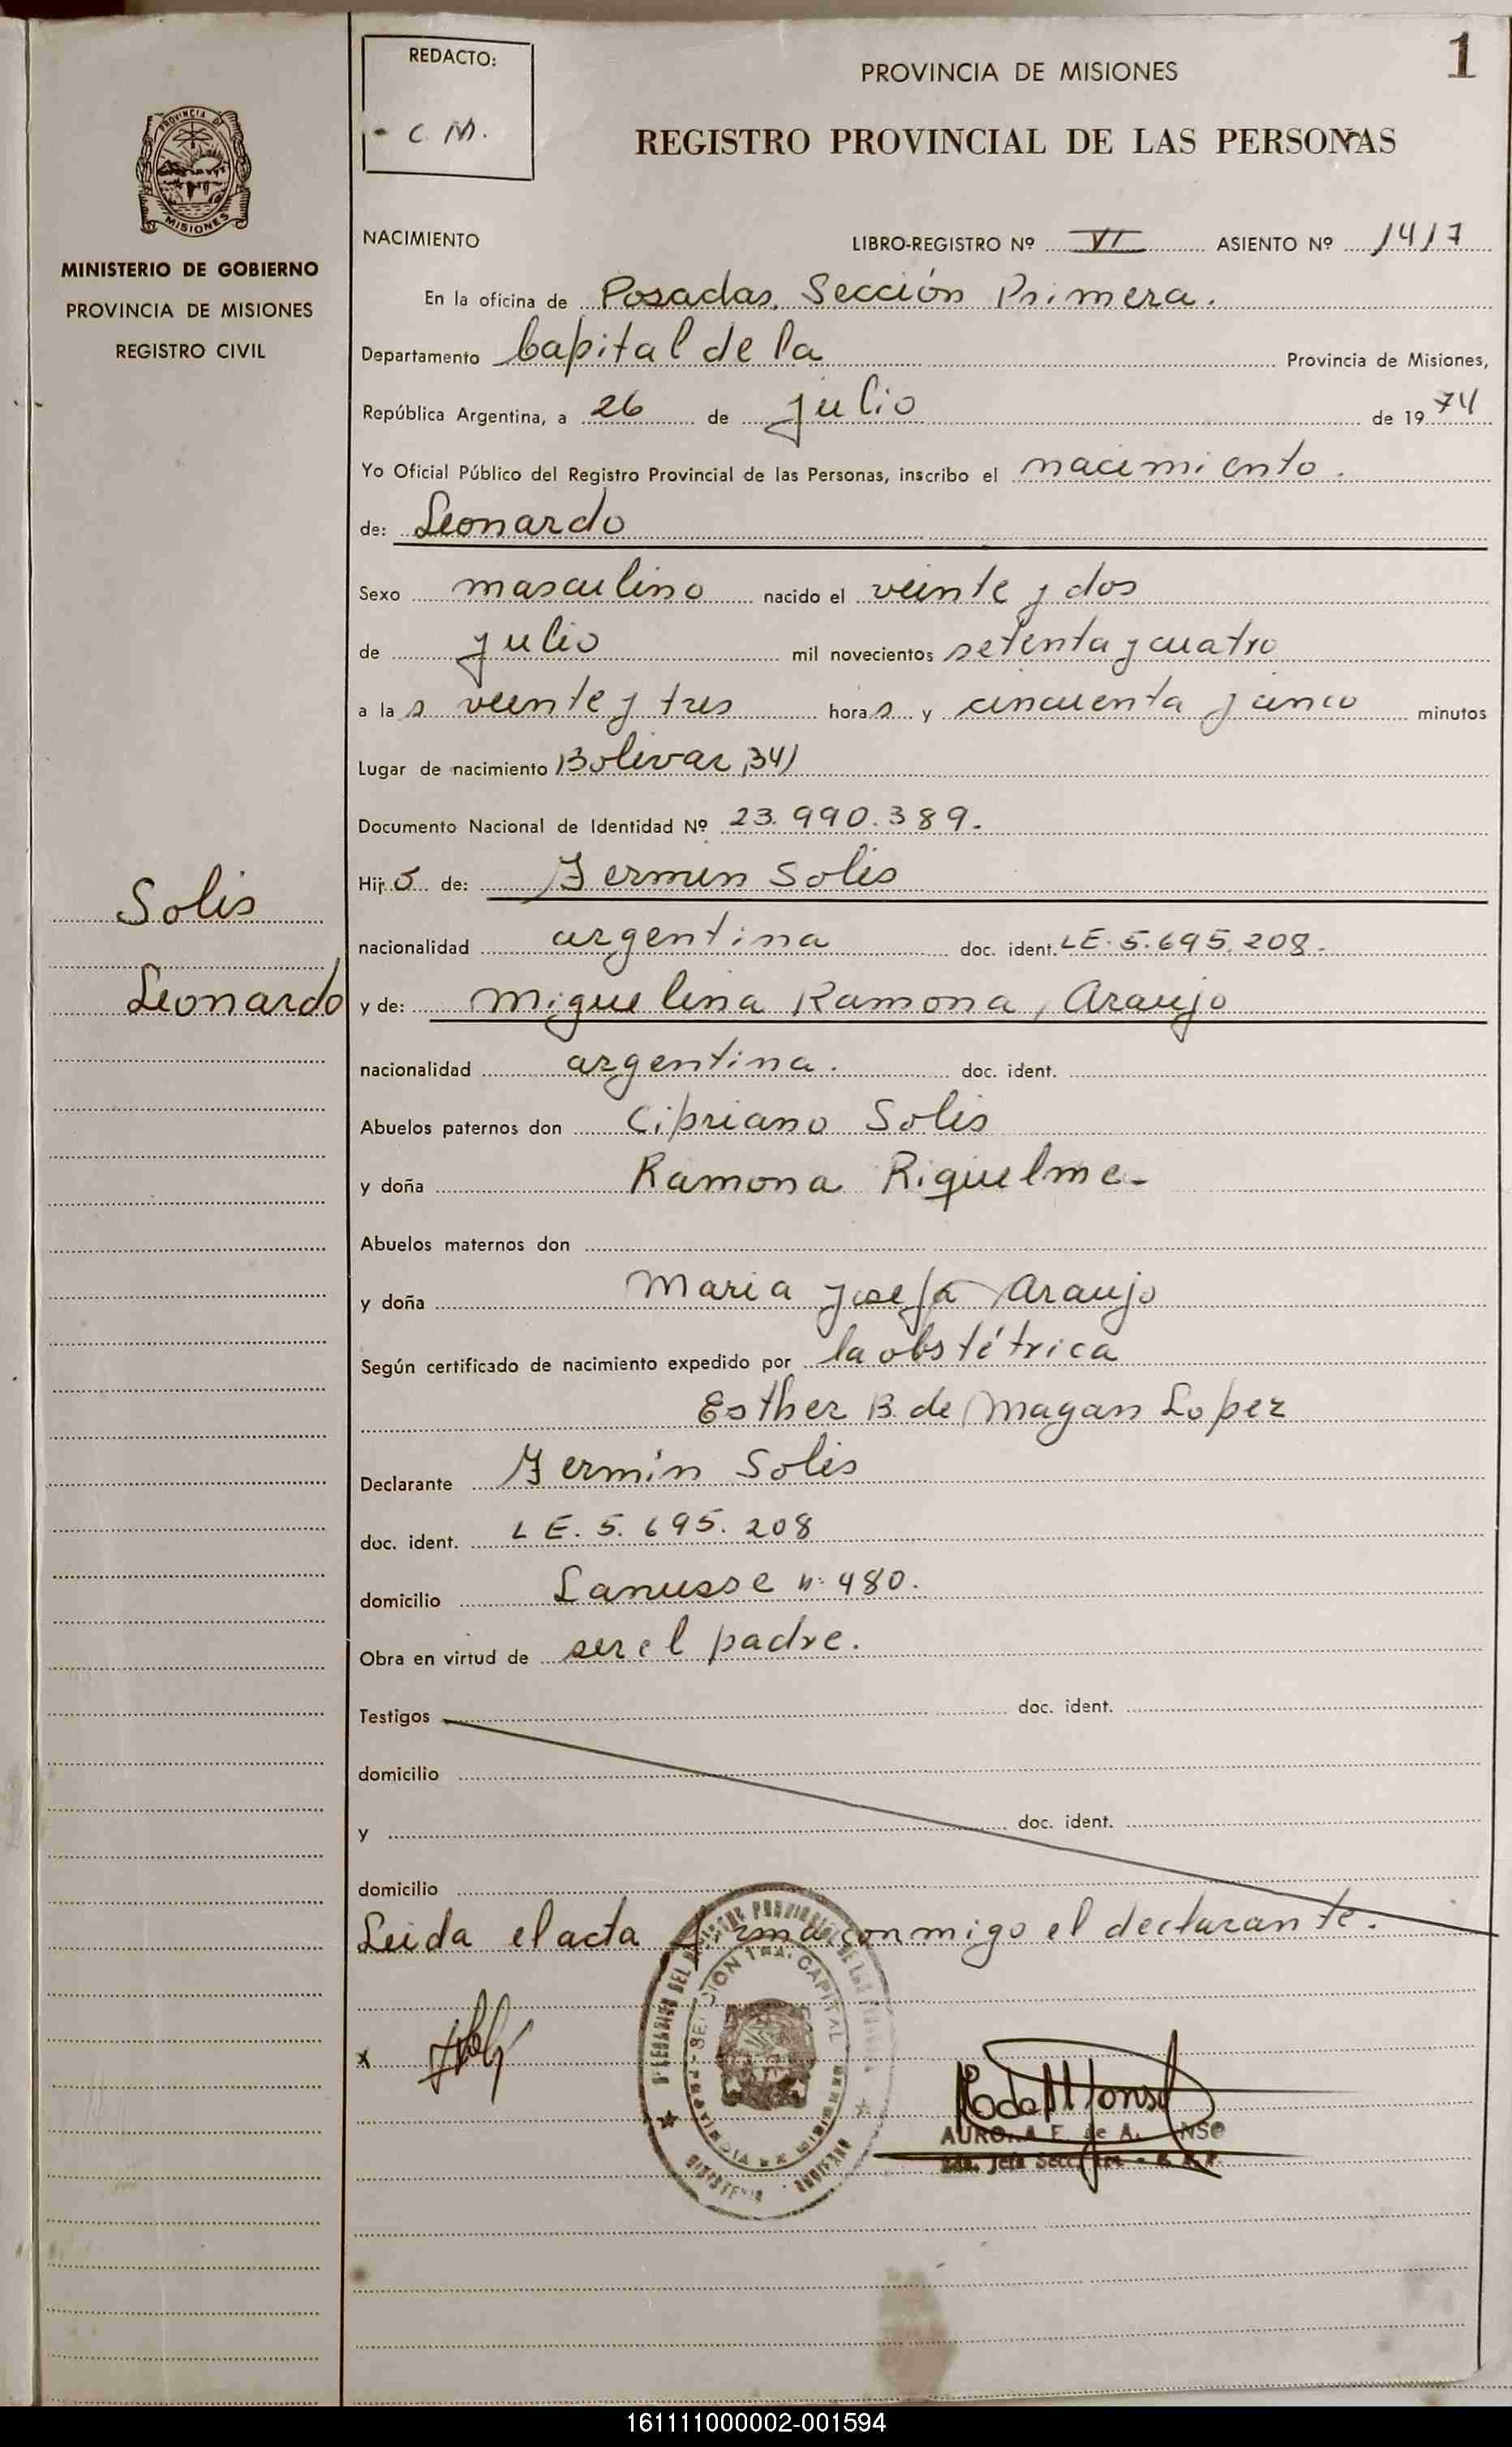 1
REDACTO:
C. M.
PROVINCIA DE MISIONES
REGISTRO PROVINCIAL DE LAS PERSONAS
PROVINCIA DE
MISIONES
MINISTERIO DE GOBIERNO
PROVINCIA DE MISIONES
REGISTRO CIVIL
Solis
Leonardo
NACIMIENTO LIBRO-REGISTRO Nº VI ASIENTO Nº 1417
En la oficina de Posadas, Sección Primera.
Departamento Capital de la Provincia de Misiones,
República Argentina, a 26 de julio de 1974
Yo Oficial Público del Registro Provincial de las Personas, inscribo el nacimiento.
de: Leonardo
Sexo masculino nacido el veinte y dos
de julio mil novecientos setenta y cuatro
a las veinte y tres horas y cincuenta y cinco minutos
Lugar de nacimiento Bolivar, 341
Documento Nacional de Identidad Nº 23.990.389.
Hijo de: Fermin Solis
nacionalidad argentina doc. ident. LE. 5.695.208.
y de: Miguelina Ramona, Araujo
nacionalidad argentina. doc. ident.
Abuelos paternos don Cipriano Solis
y doña Ramona Riquelme-
Abuelos maternos don
y doña Maria Josefa Araujo
Según certificado de nacimiento expedido por la obstétrica
Esther B. de Magan Lopez
Declarante Fermín Solis
doc. ident. LE. 5. 695. 208
domicilio Lanusse n: 480.
Obra en virtud de ser el padre.
Testigos doc. ident.
domicilio
y doc. ident.
domicilio
Leida el acta firma conmigo el declarante.
x
SECCION 1RA. CAPITAL
161111000002-001594